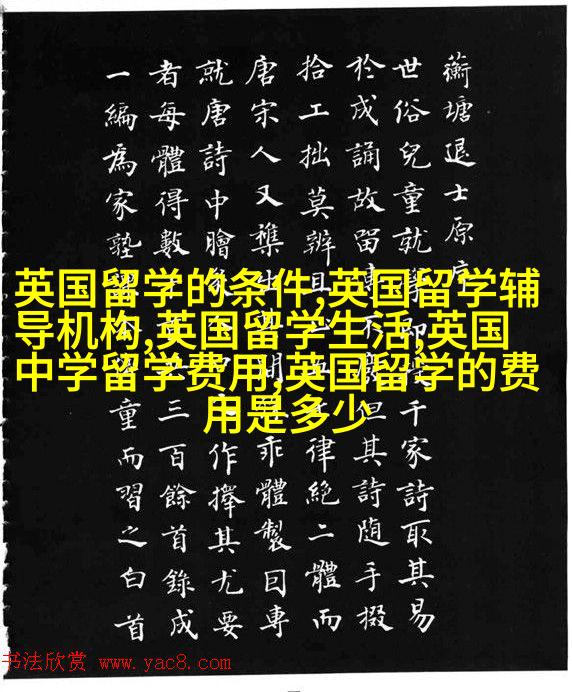 英国留学的条件,英国留学辅
导机构,英国留学生活,英国
中学留学费用,英国留学的费
用是多少
蘅塘退士原序
世俗兒童就學即千家詩取其易
於成誦故留不但其詩隨手掇
拾工拙莫辨且律絕二體而
唐宋人又襍乖體製因專
就唐詩中膾作擇其尤要
者每體得數三百餘首錄成
一編爲家塾童而習之白首
书法欣赏 www.yac8.com